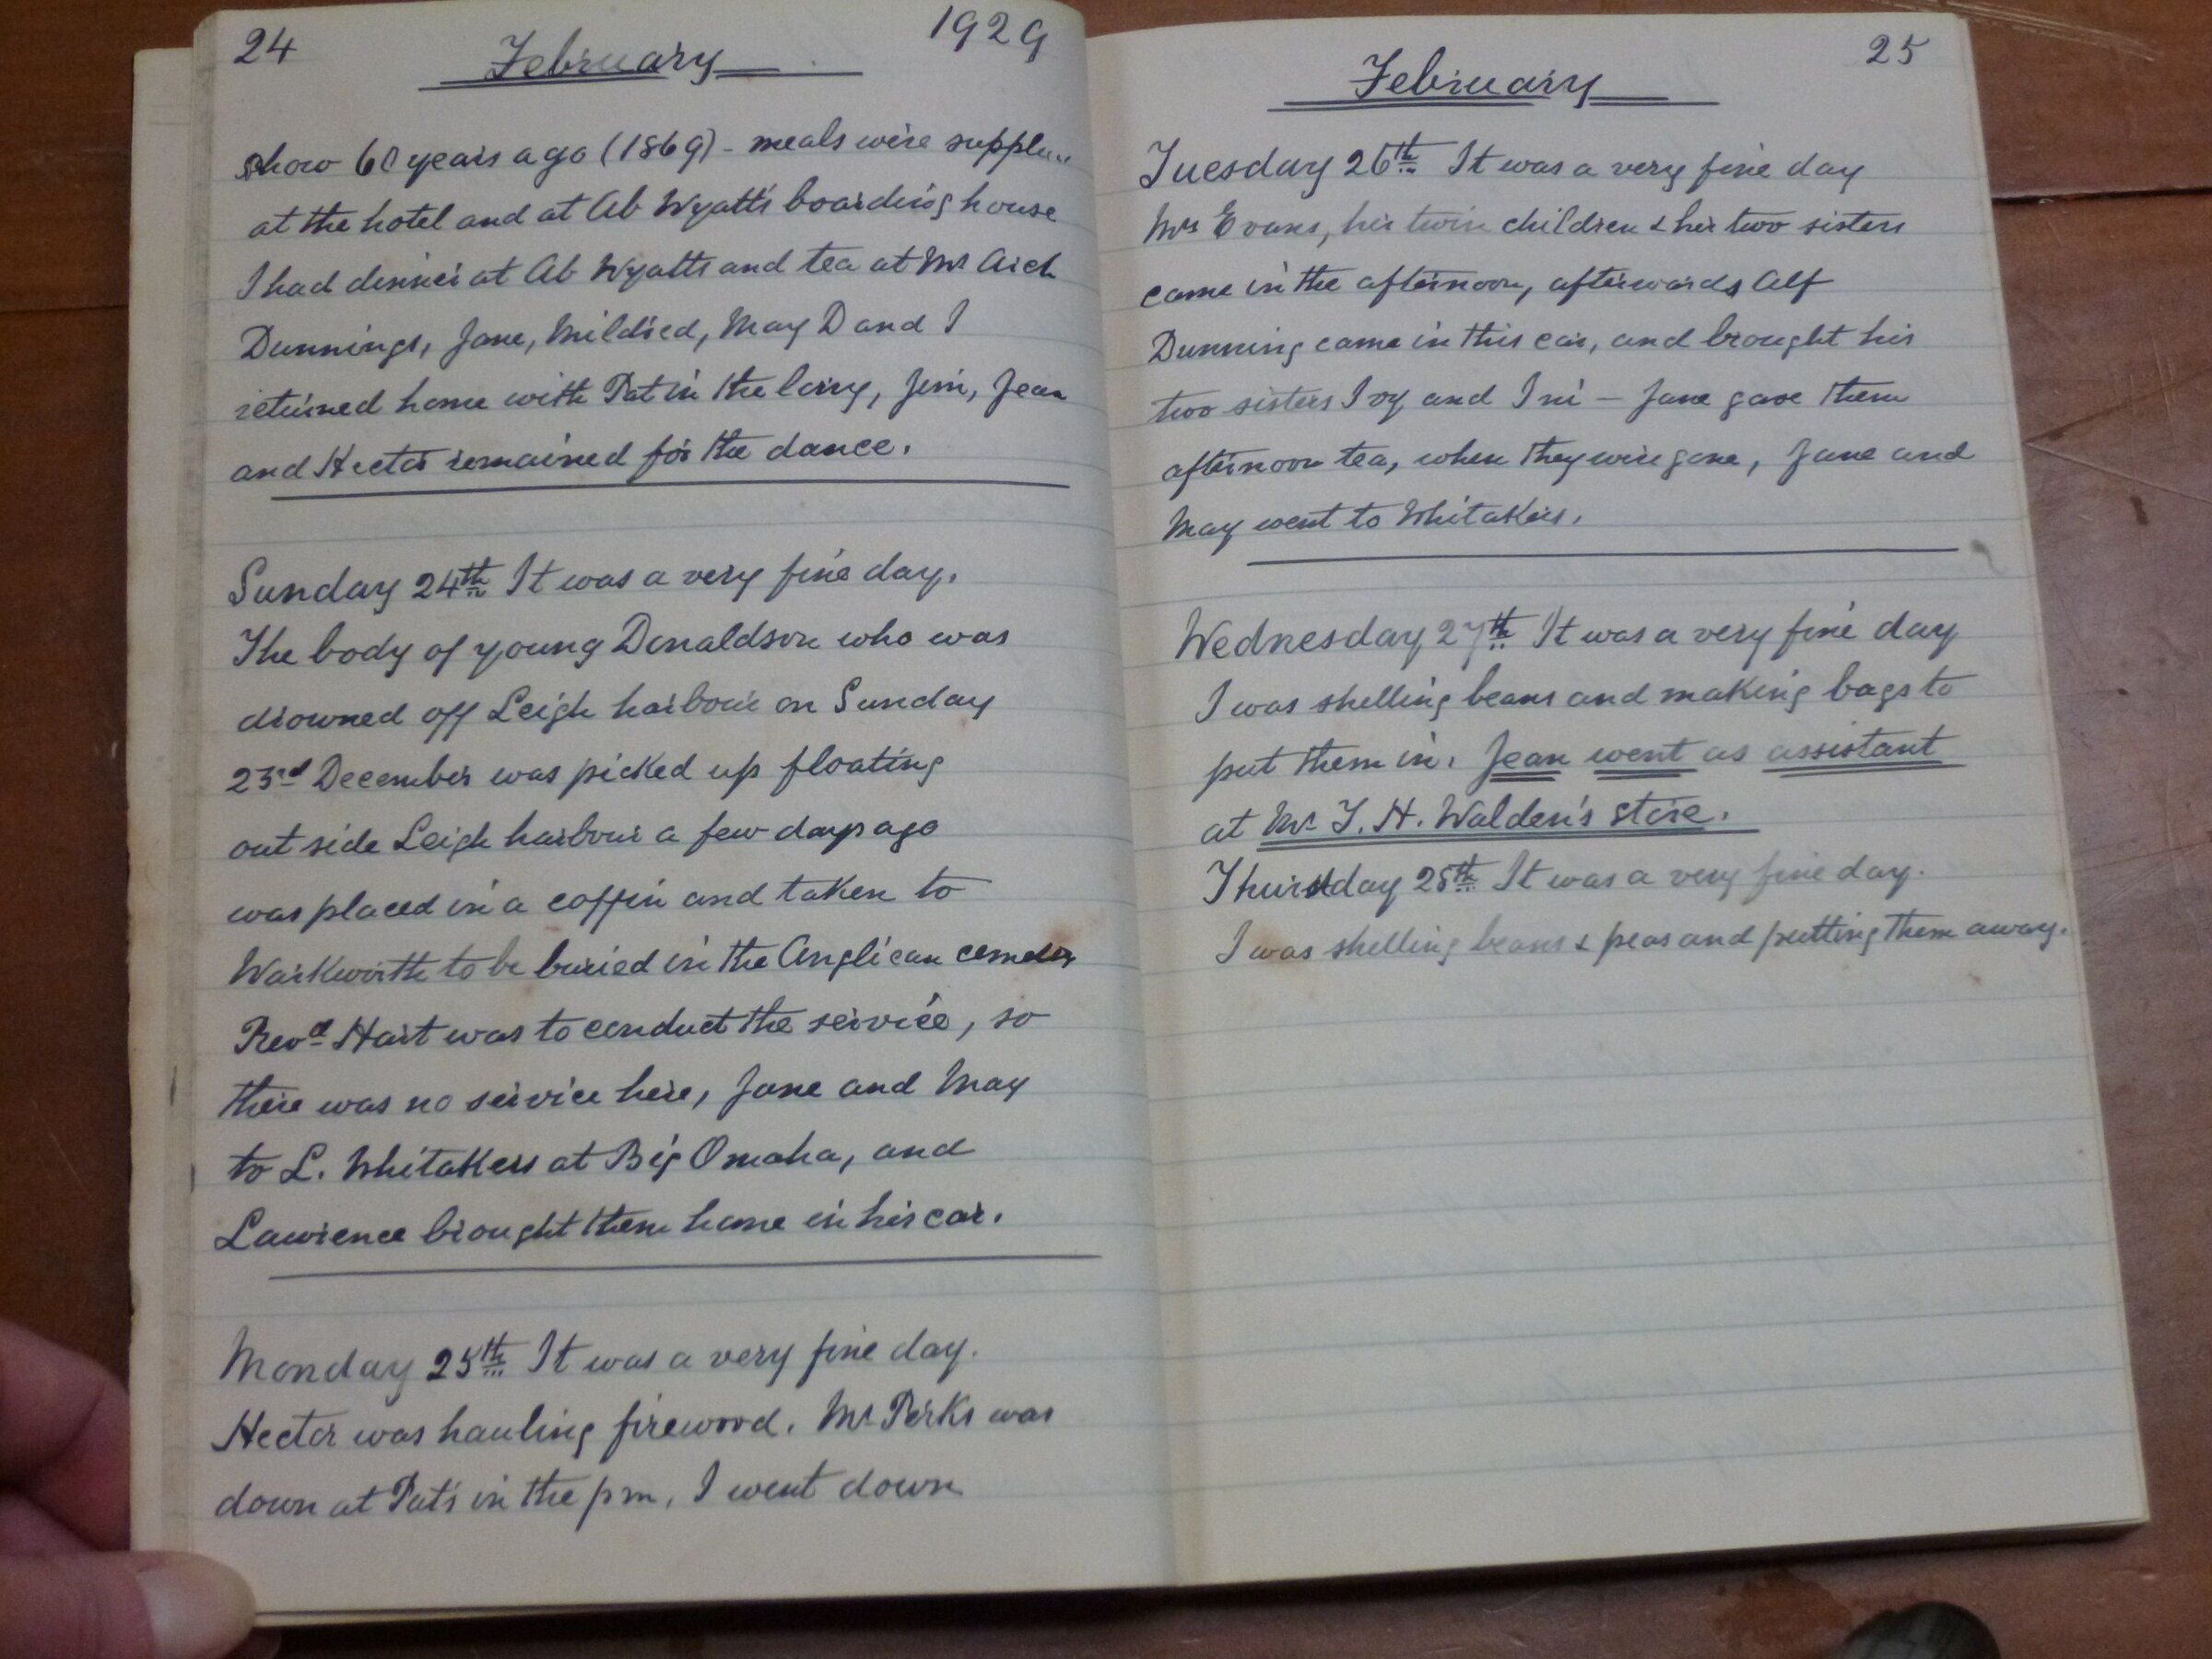 24 February 1929
show 60 years ago (1869) - meals were supplied
at the hotel and at Ab Wyatt's boarding house
I had dinner at Ab Wyatts and tea at Mr Arch
Dunnings, Jane, Mildred, May D and I
returned home with Pat in the lorry, Jim, Jean
and Hector remained for the dance.
Sunday 24th It was a very fine day.
The body of young Donaldson who was
drowned off Leigh harbour on Sunday
23rd December was picked up floating
out side Leigh harbour a few days ago
was placed in a coffin and taken to
Warkworth to be buried in the Anglican cemetery
Revd Hart was to conduct the service, so
there was no service here, Jane and May
to L. Whitakers at Big Omaha, and
Lawrence brought them home in his car.
Monday 25th It was a very fine day.
Hector was hauling firewood. Mr Perks was
down at Pat's in the pm, I went down
February 25
Tuesday 26th It was a very fine day
Mrs Evans, her twin children & her two sisters
came in the afternoon, afterwards Alf
Dunning came in his car, and brought his
two sisters Ivy and Ini - Jane gave them
afternoon tea, when they were gone, Jane and
May went to Whitakers.
Wednesday 27th It was a very fine day
I was shelling beans and making bags to
put them in. Jean went as assistant
at Mr T. H. Walden's store.
Thursday 28th It was a very fine day.
I was shelling beans & peas and putting them away.